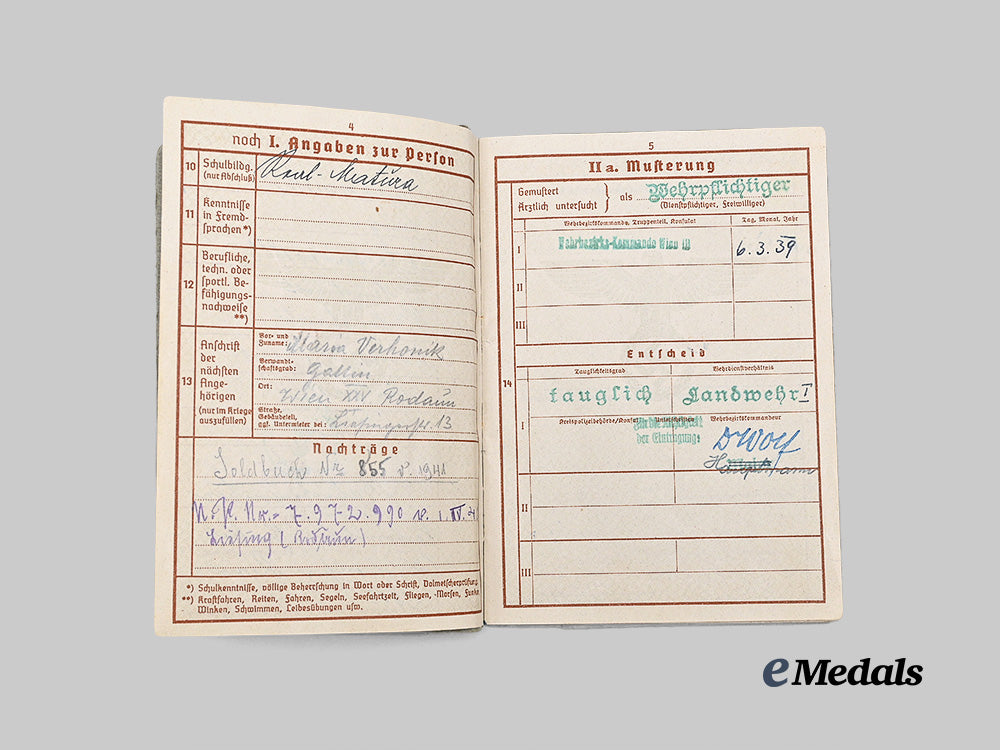 4
noch I. Angaben zur Person
10 Schulbildg. (nur Abschluß)
Real-Matura
11 Kenntnisse in Fremdsprachen *)
12 Berufliche, techn. oder sportl. Befähigungsnachweise **)
13 Anschrift der nächsten Angehörigen (nur im Kriege auszufüllen)
Vor- und Zuname: Maria Verhonik
Verwandtschaftsgrad: Gattin
Ort: Wien XXV Rodaun
Straße, Gebäudeteil, ggf. Untermieter bei: Liesingerstr. 13
Nachträge
Soldbuch Nr 855 v. 1941
Nr.- 7.972.990 v. 1. IV.
Liesing (Rodaun)
*) Schulkenntnisse, völlige Beherrschung in Wort oder Schrift, Dolmetscherprüfung
**) Kraftfahren, Reiten, Fahren, Segeln, Seefahrtzeit, Fliegen, -Morsen, Funken
Winken, Schwimmen, Leibesübungen usw.
5
IIa. Musterung
Gemustert
Ärztlich untersucht } als Wehrpflichtiger
(Dienstpflichtiger, Freiwilliger)
Wehrbezirkskommando, Truppenteil, Konsulat
Tag, Monat, Jahr
I Wehrbezirks-Kommando Wien III 6.3.39
II
III
Entscheid
14
Tauglichkeitsgrad
Wehrdienstverhältnis
tauglich Landwehr I
Kreispolizeibehörde/
Wehrbezirkskommandeur
I
für die Richtigkeit
der Eintragung:
DWolf
Hauptmann
II
III
eMedals